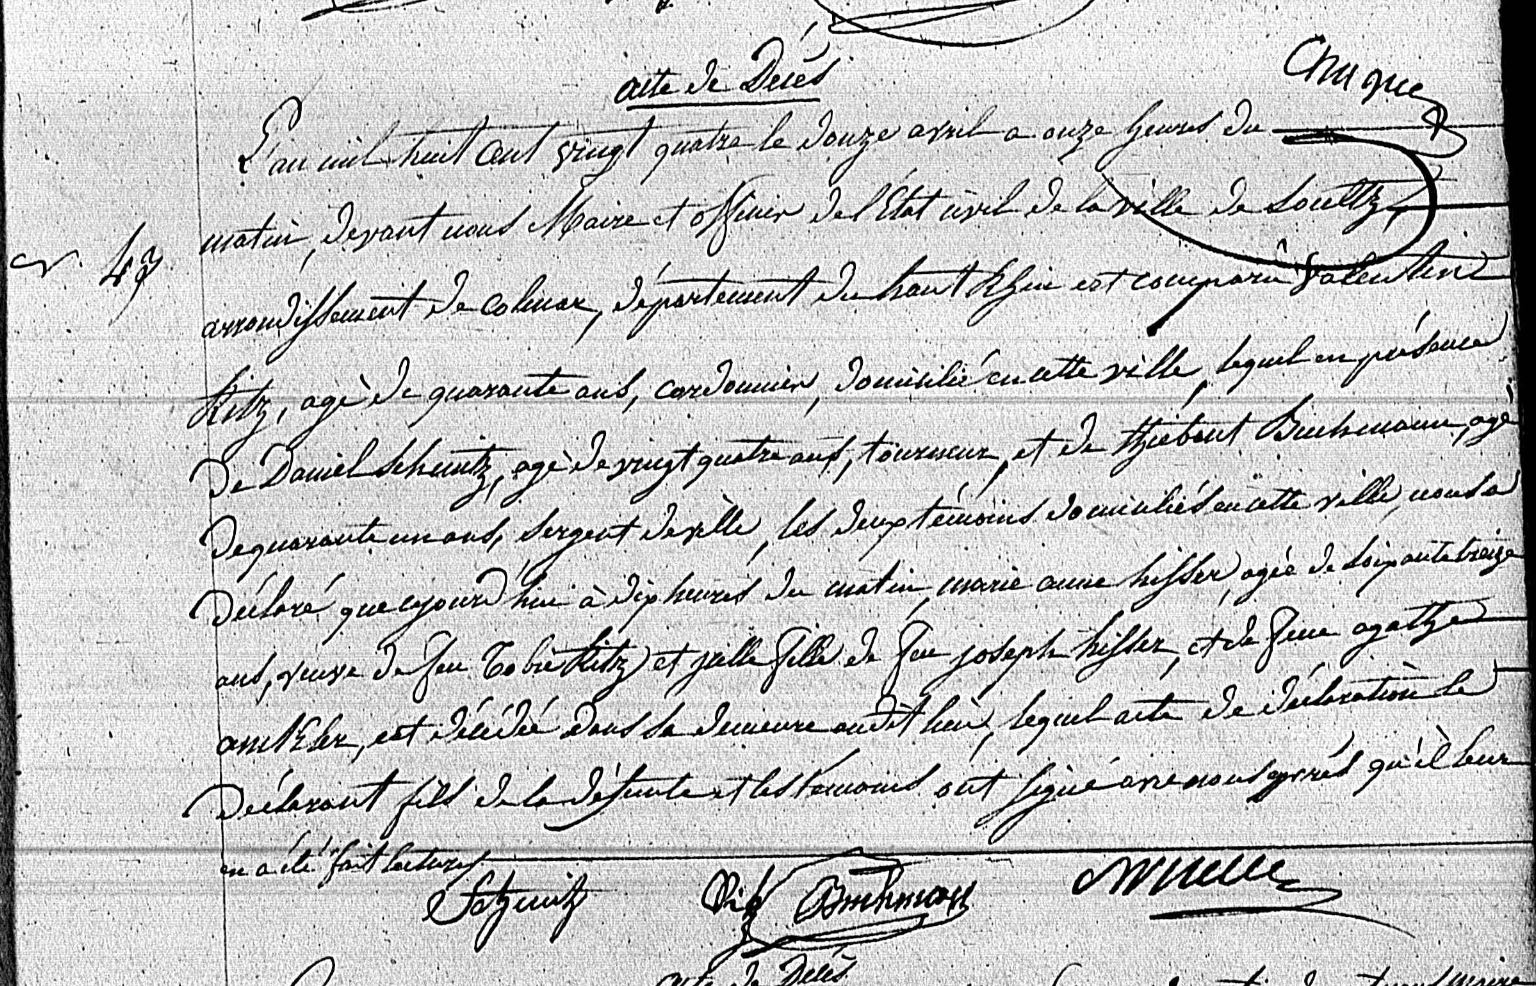 acte de Décés
L'an mil huit cent vingt quatre le douze avril a onze heures du
matin, devant nous Maire et officier de l'Etat civil de la ville de Soultz,
N. 47
arrondissement de Colmar, département du haut Rhin est comparû Valentin
Ritz, agè de quarante ans, cordonnier, domicilié en cette ville, lequel en présence
de Daniel Schmitz, agè de vingt quatre ans, tourneur, et de thiebaut Buchmann, agè
de quarante un ans, sergent de ville, les deux témoins domiciliés en cette ville, nous a
déclaré que cejourd'hui à dix heures du matin, marie anne hisser, agée de soixante treize
ans, veuve de feu Tobie Ritz et fille de feu joseph hisser, et de feue agathe
est décédée dans sa demeure audit lieu, lequel acte de déclaration le
Déclarant fils de la défunte et les témoins ont signé avec nous aprés qu'il leur
en a été fait lecture
Schmitz Ritz Buchmann
acte de Décés